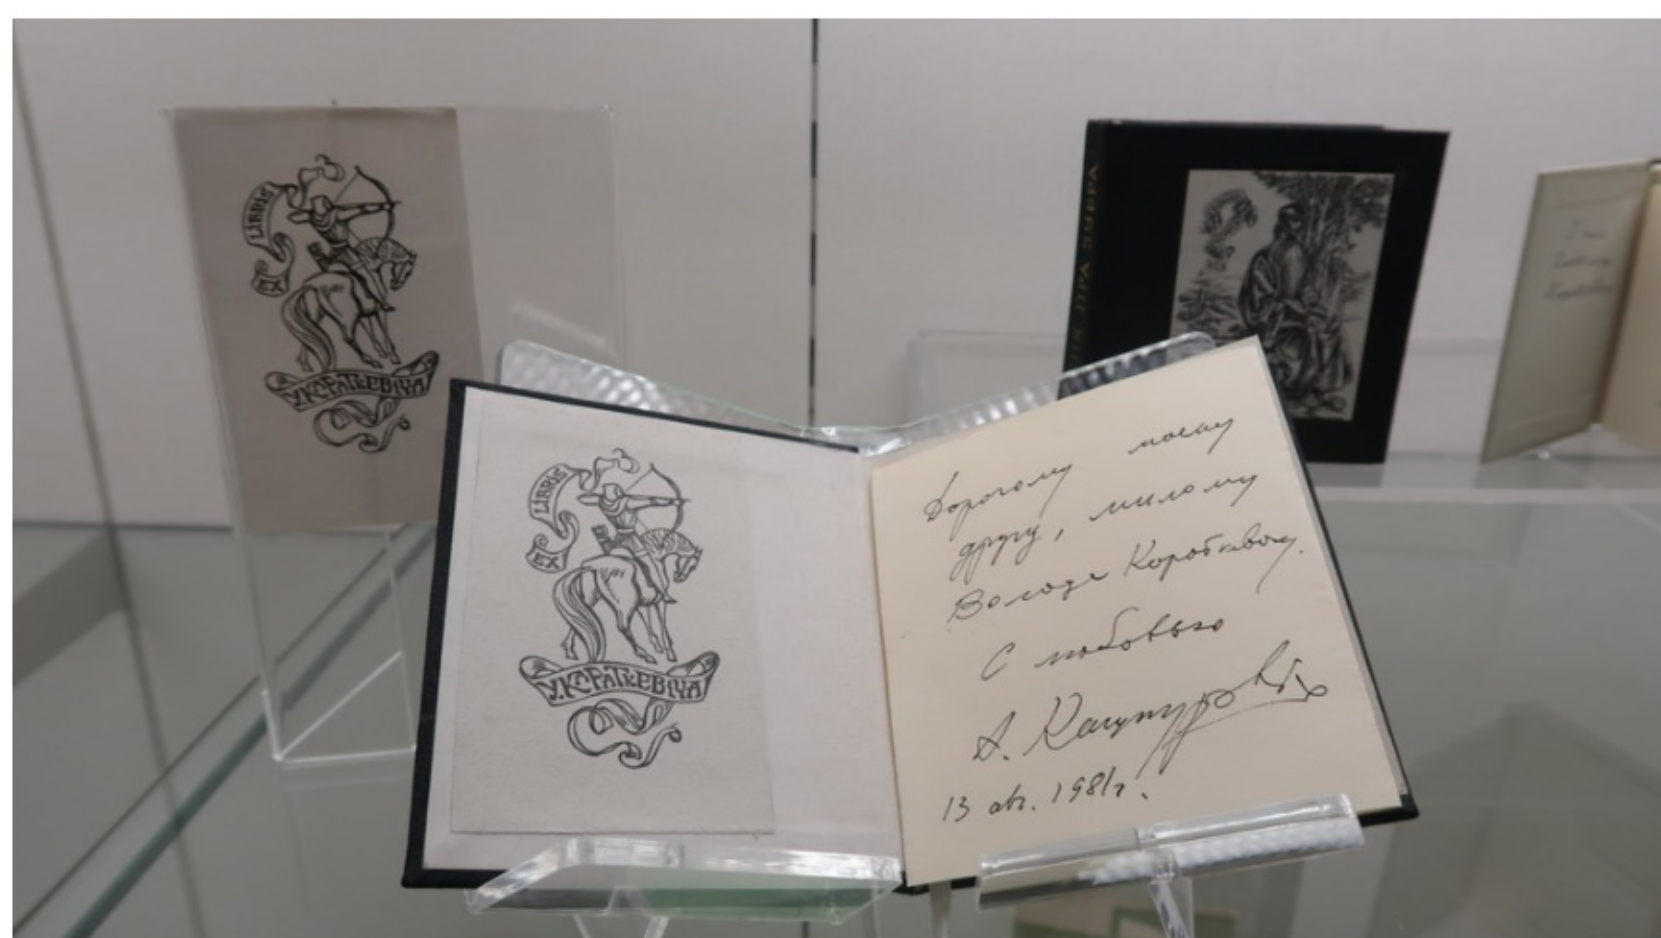 LIBRIS
EX
У.КАРАТКЕВІЧА
ПРА ЗУБРА
LIBRIS
EX
У.КАРАТКЕВІЧА
Дорогому моему
другу, милому
Володе Короткевичу.
С любовью
А. Кашкуревич
13 авг. 1981г.